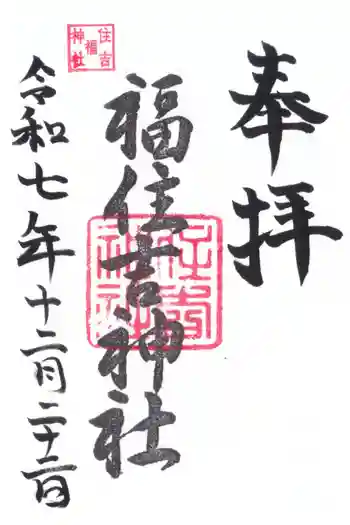 奉拝
福住吉神社
令和七年十二月二十二日
住吉
福
神社
住吉
神社